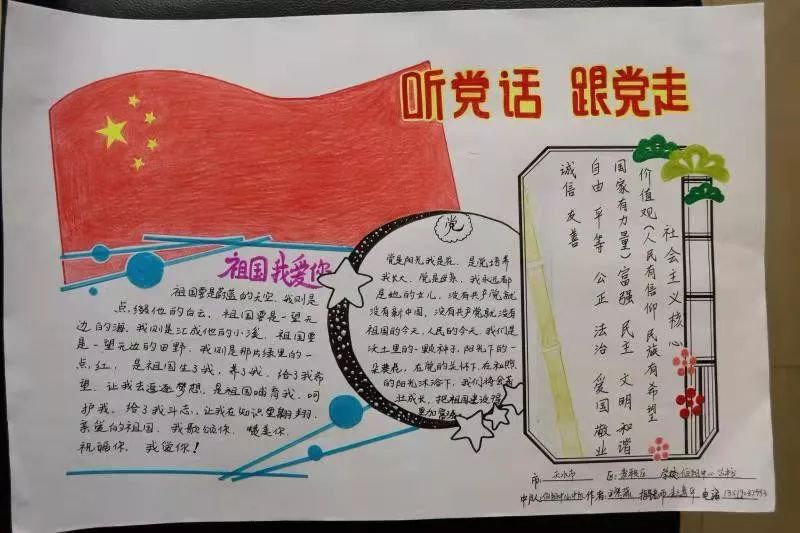 听党话 跟党走
祖国我爱你
祖国要是蔚蓝的天空，我则是
点缀他的白云，祖国要是一望无
边的海，我则是汇成他的小溪，祖国要
是一望无边的田野，我则是那片绿里的一
点，红，是祖国生了我，养了我，给了我希
望，让我去追逐梦想，是祖国哺育我，呵
护我，给了我斗志，让我在知识里翱翔，
亲爱的祖国，我歌颂你，
祝福你，我爱你！
党
党是阳光我是花，是党培养
我长大，党是母亲，我永远都
是她的女儿，没有共产党就
没有新中国，没有共产党就没有
祖国的今天，人民的今天，我们是
沃土里的一颗种子，阳光下的一
朵葵花，在党的关怀下，在和煦
的阳光沐浴下，我们将会茁
壮成长，把祖国建设得
更加富强
社会主义核心
价值观（人民有信仰 民族有希望
国家有力量）富强 民主 文明 和谐
自由 平等 公正 法治 爱国 敬业
诚信 友善
市：天水市 区：麦积区 学校：伯阳中心
作者： 指导师 电话